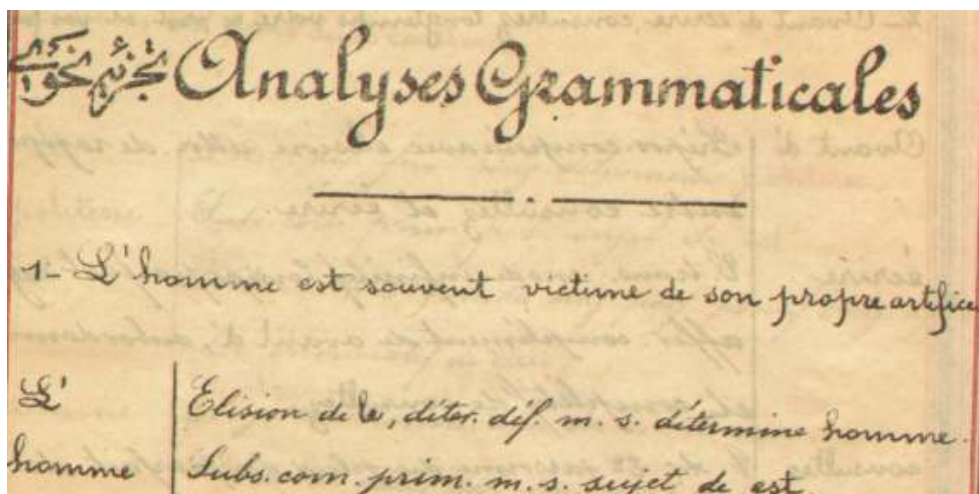 تجزيه نحوى Analyses Grammaticales
1- L'homme est souvent victime de son propre artifice
L' Elision de le, déter. déf. m. s. détermine homme.
homme Subs. com. prim. m. s. sujet de est